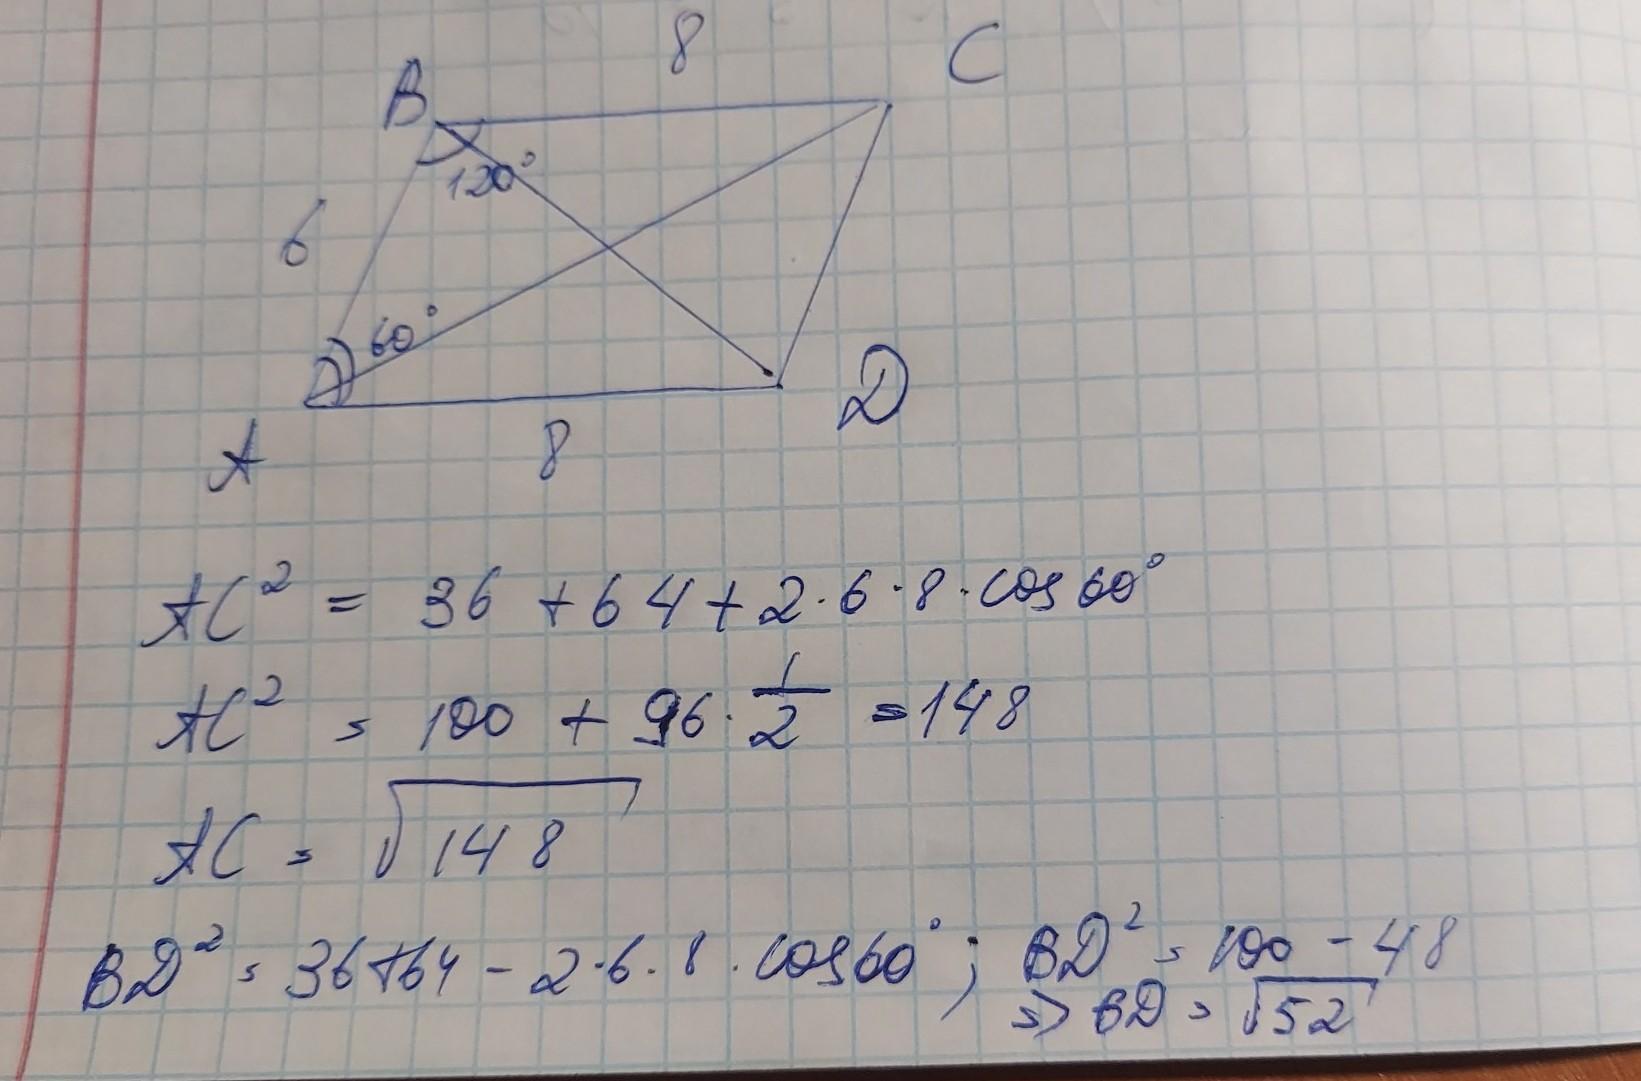 8
B C
120°
6
60°
A 8 D
AC² = 36 + 64 + 2·6·8·cos 60°
AC² = 100 + 96·1/2 = 148
AC = √148
BD² = 36+64 - 2·6·8·cos60°; BD² = 100 - 48
=> BD = √52